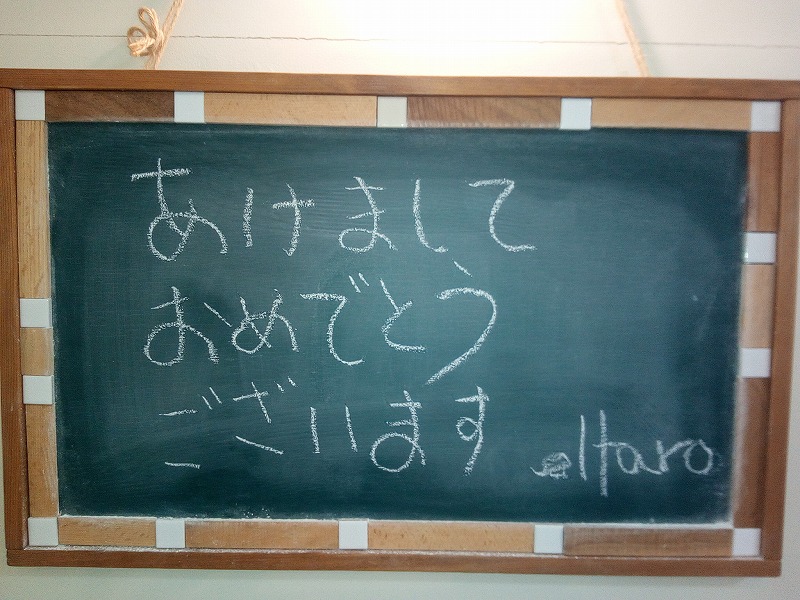 あけまして
おめでとう
ございます
eltaro